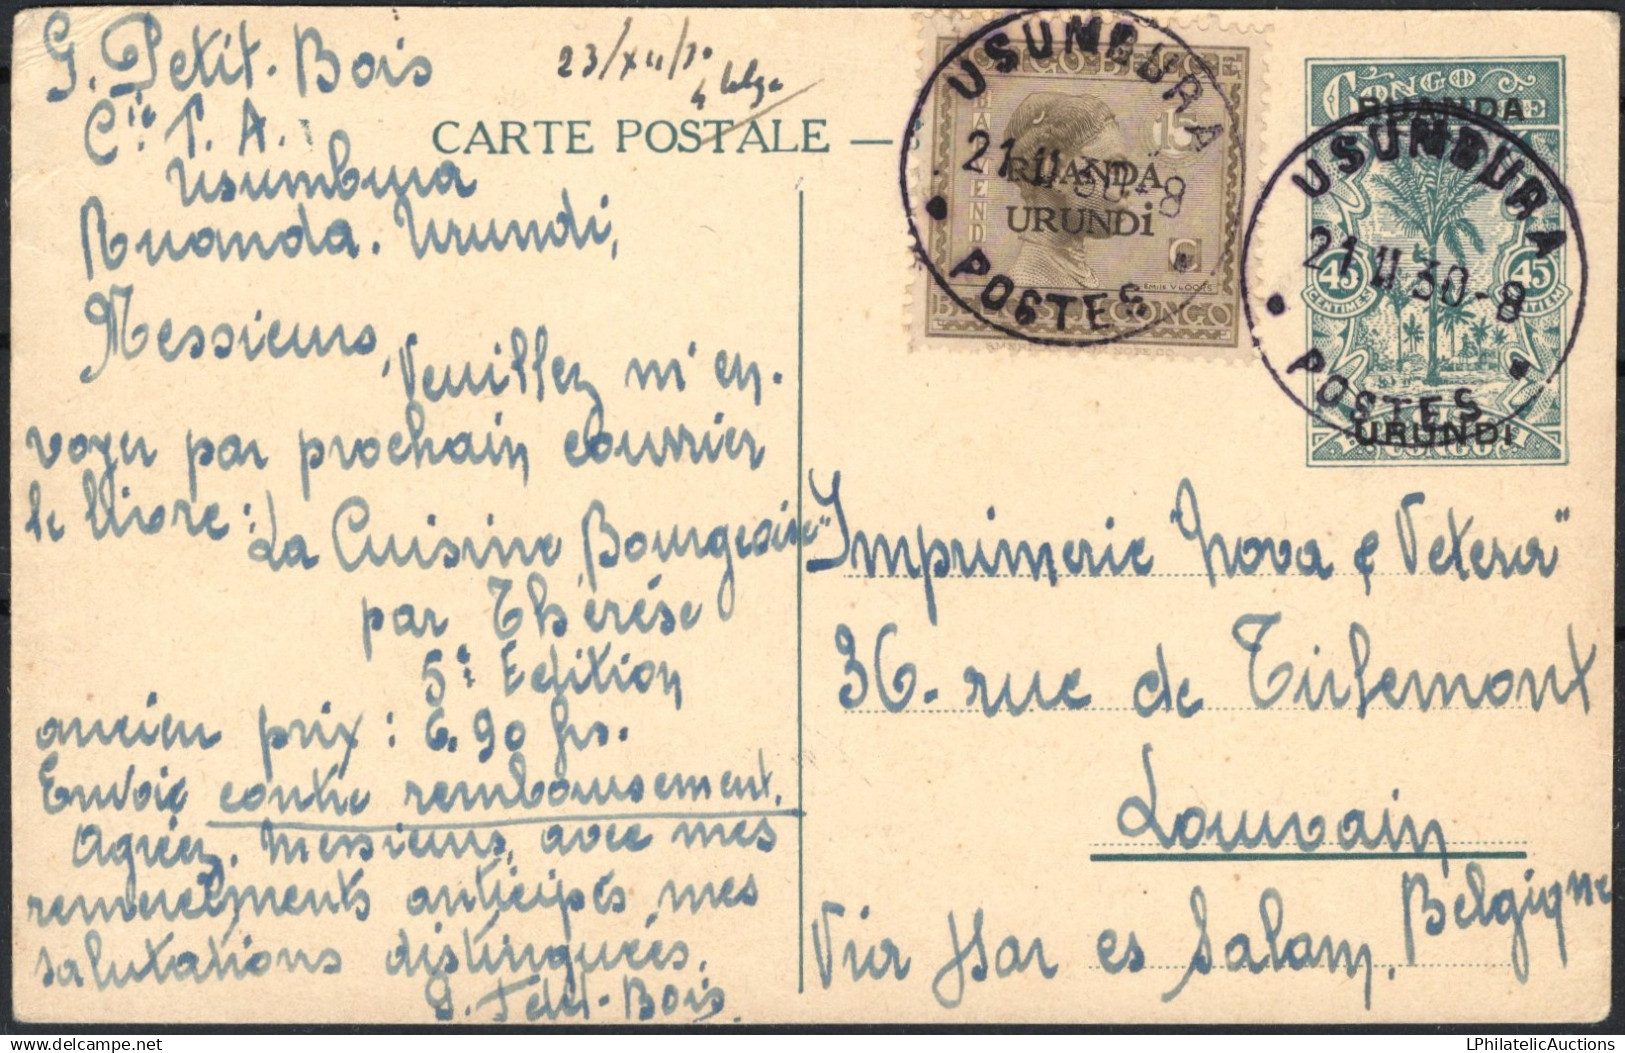 G. Petit-Bois
Cie T. A.
Usumbura
Ruanda. Urundi,
23/XII/30
4 belga
CARTE POSTALE —
Messieurs,
Veuillez m'en-
voyer par prochain courrier
le livre:
La Cuisine Bourgeoise
par Thérèse
5e Edition
ancien prix: 6.90 frs.
Envoie contre remboursement.
Agréez, Messieurs, avec mes
remerciements anticipés, mes
salutations distinguées.
G. Petit-Bois.
CONGO BELGE
BAKWENDE
15
C
RUANDA
URUNDI
EMILE VLOORS
BELGISCH CONGO
USUMBURA
21.11.30-8
POSTES
CONGO
BELGE
RUANDA
45
CENTIMES
45
CENTIEM
URUNDI
USUMBURA
21.11.30-8
POSTES
"Imprimerie Nova & Vetera"
36. rue de Tirlemont
Louvain
Belgique
Via Dar es Salam.
LPhilatelicAuctions